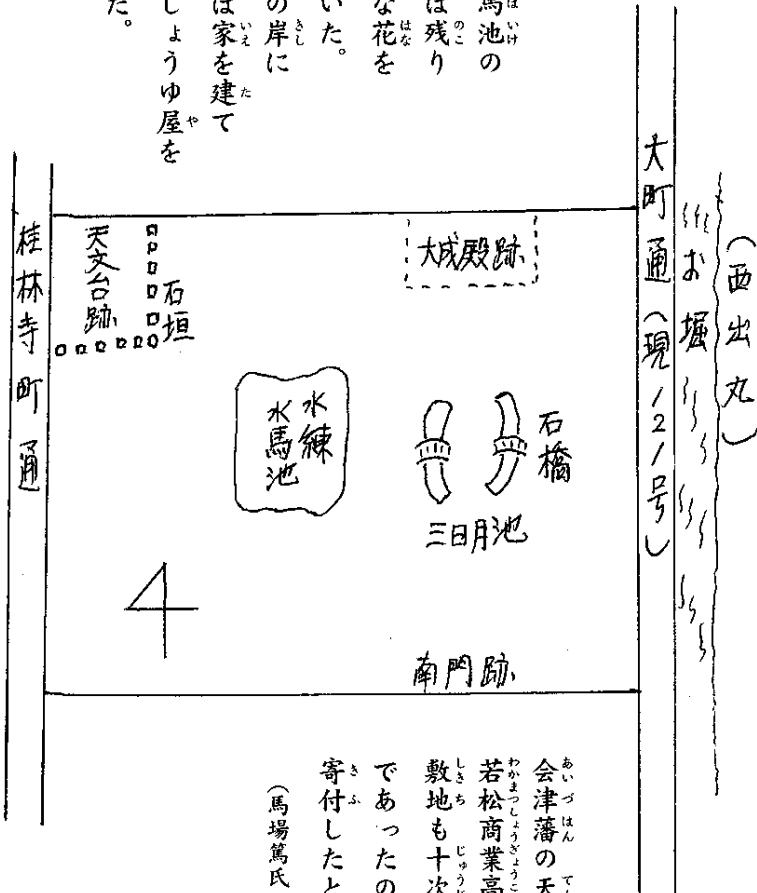 馬池の
は残り
な花を
いた。
の岸に
は家を建て
しょうゆ屋を
た。
(西出丸)
お堀
大町通(現121号)
大成殿跡
石垣
天文台跡
桂林寺町通
石橋
三日月池
水練
水馬池
南門跡
会津藩の天
若松商業高
敷地も十次
であったの
寄付したと
(馬場篤氏